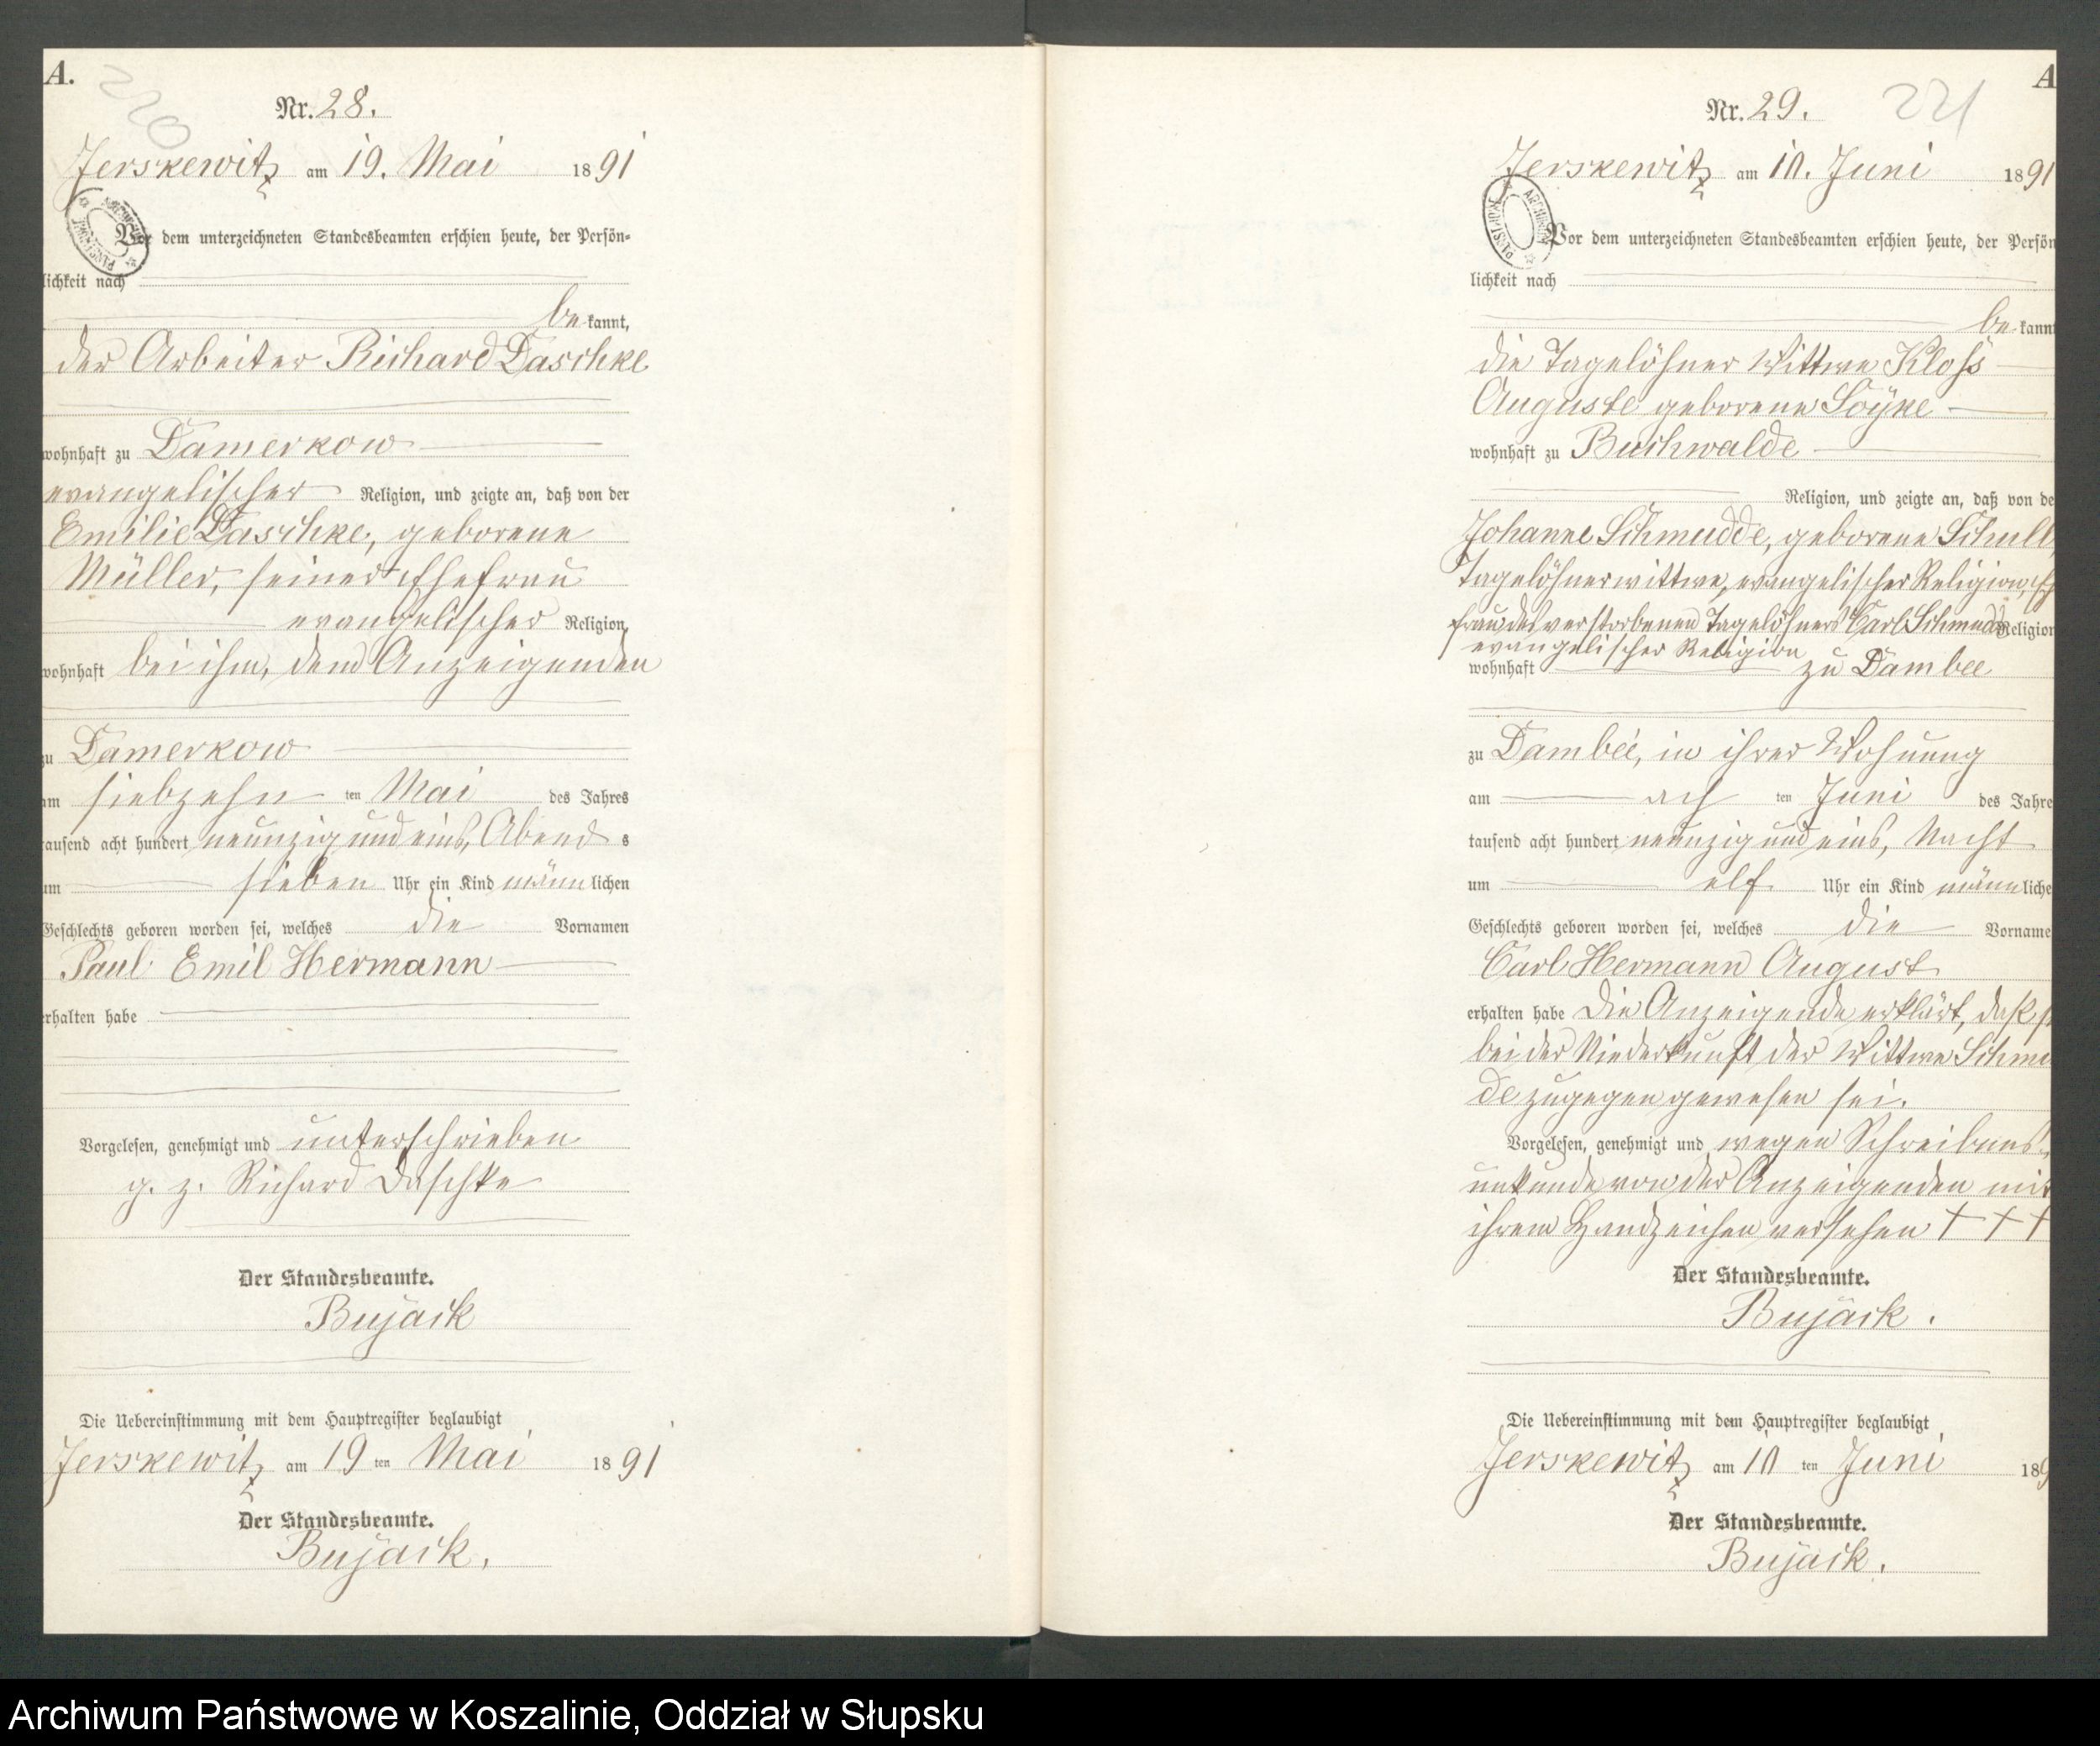 A.
220
Nr. 28.
Jerskewitz am 19. Mai 1891
Vor dem unterzeichneten Standesbeamten erschien heute, der Persön-
lichkeit nach
bekannt,
der Arbeiter Richard Daschke
wohnhaft zu Damerkow
evangelischer Religion, und zeigte an, daß von der
Emilie Daschke, geborene
Müller, seiner Ehefrau
evangelischer Religion,
wohnhaft bei ihm, dem Anzeigenden
zu Damerkow
am siebzehn ten Mai des Jahres
tausend acht hundert neunzig und eins, Abends
um sieben Uhr ein Kind männlichen
Geschlechts geboren worden sei, welches die Vornamen
Paul Emil Hermann
erhalten habe
Vorgelesen, genehmigt und unterschrieben
g. z. Richard Daschke
Der Standesbeamte.
Bujack
Die Uebereinstimmung mit dem Hauptregister beglaubigt
Jerskewitz am 19 ten Mai 1891
Der Standesbeamte.
Bujack.
A
221
Nr. 29.
Jerskewitz am 10. Juni 1891
Vor dem unterzeichneten Standesbeamten erschien heute, der Persön
lichkeit nach
bekannt
die Tagelöhner Wittwe Kloss
Auguste geborene Soyke
wohnhaft zu Buchwalde
Religion, und zeigte an, daß von de
Johanne Schmudde, geborene Schull
Tagelöhnerwittwe, evangelischer Religion, Eh
frau des verstorbenen Tagelöhners Carl Schmudde Religion
evangelischer Religion
wohnhaft zu Dambee
zu Dambee, in ihrer Wohnung
am ach ten Juni des Jahre
tausend acht hundert neunzig und eins, Nacht
um elf Uhr ein Kind männliche
Geschlechts geboren worden sei, welches die Vorname
Carl Hermann August
erhalten habe Die Anzeigende erklärt, daß s
bei der Niederkunft der Wittwe Schmu
de zugegen gewesen sei.
Vorgelesen, genehmigt und wegen Schreibens-
unkunde von der Anzeigenden mit
ihrem Handzeichen versehen + + +
Der Standesbeamte.
Bujack.
Die Uebereinstimmung mit dem Hauptregister beglaubigt
Jerskewitz am 10 ten Juni 189
Der Standesbeamte.
Bujack.
Archiwum Państwowe w Koszalinie, Oddział w Słupsku